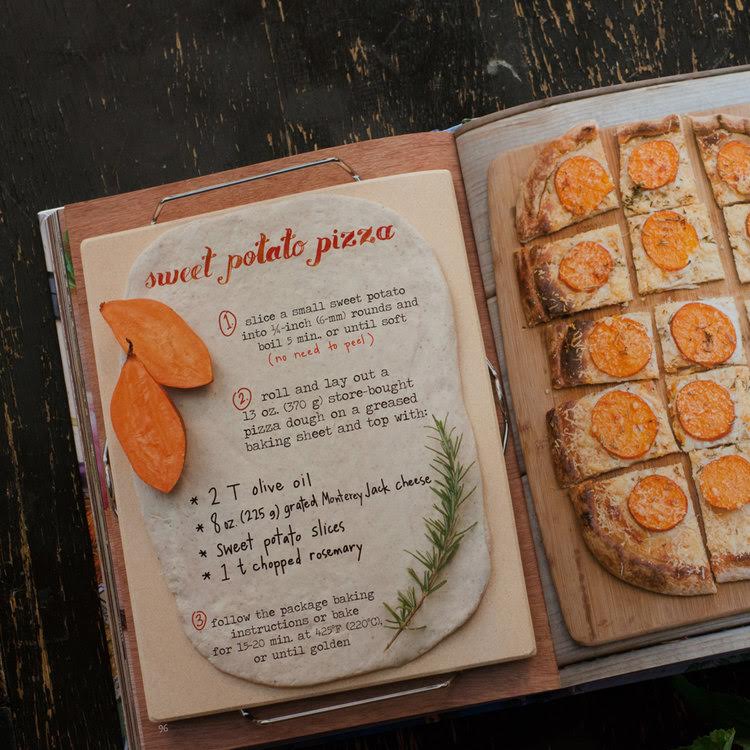 sweet potato pizza
1 slice a small sweet potato
into ¼-inch (6-mm) rounds and
boil 5 min. or until soft
(no need to peel)
2 roll and lay out a
13 oz. (370 g) store-bought
pizza dough on a greased
baking sheet and top with:
* 2 T olive oil
* 8 oz. (225 g) grated Monterey Jack cheese
* sweet potato slices
* 1 t chopped rosemary
3 follow the package baking
instructions or bake
for 15-20 min. at 425°F (220°C),
or until golden
96